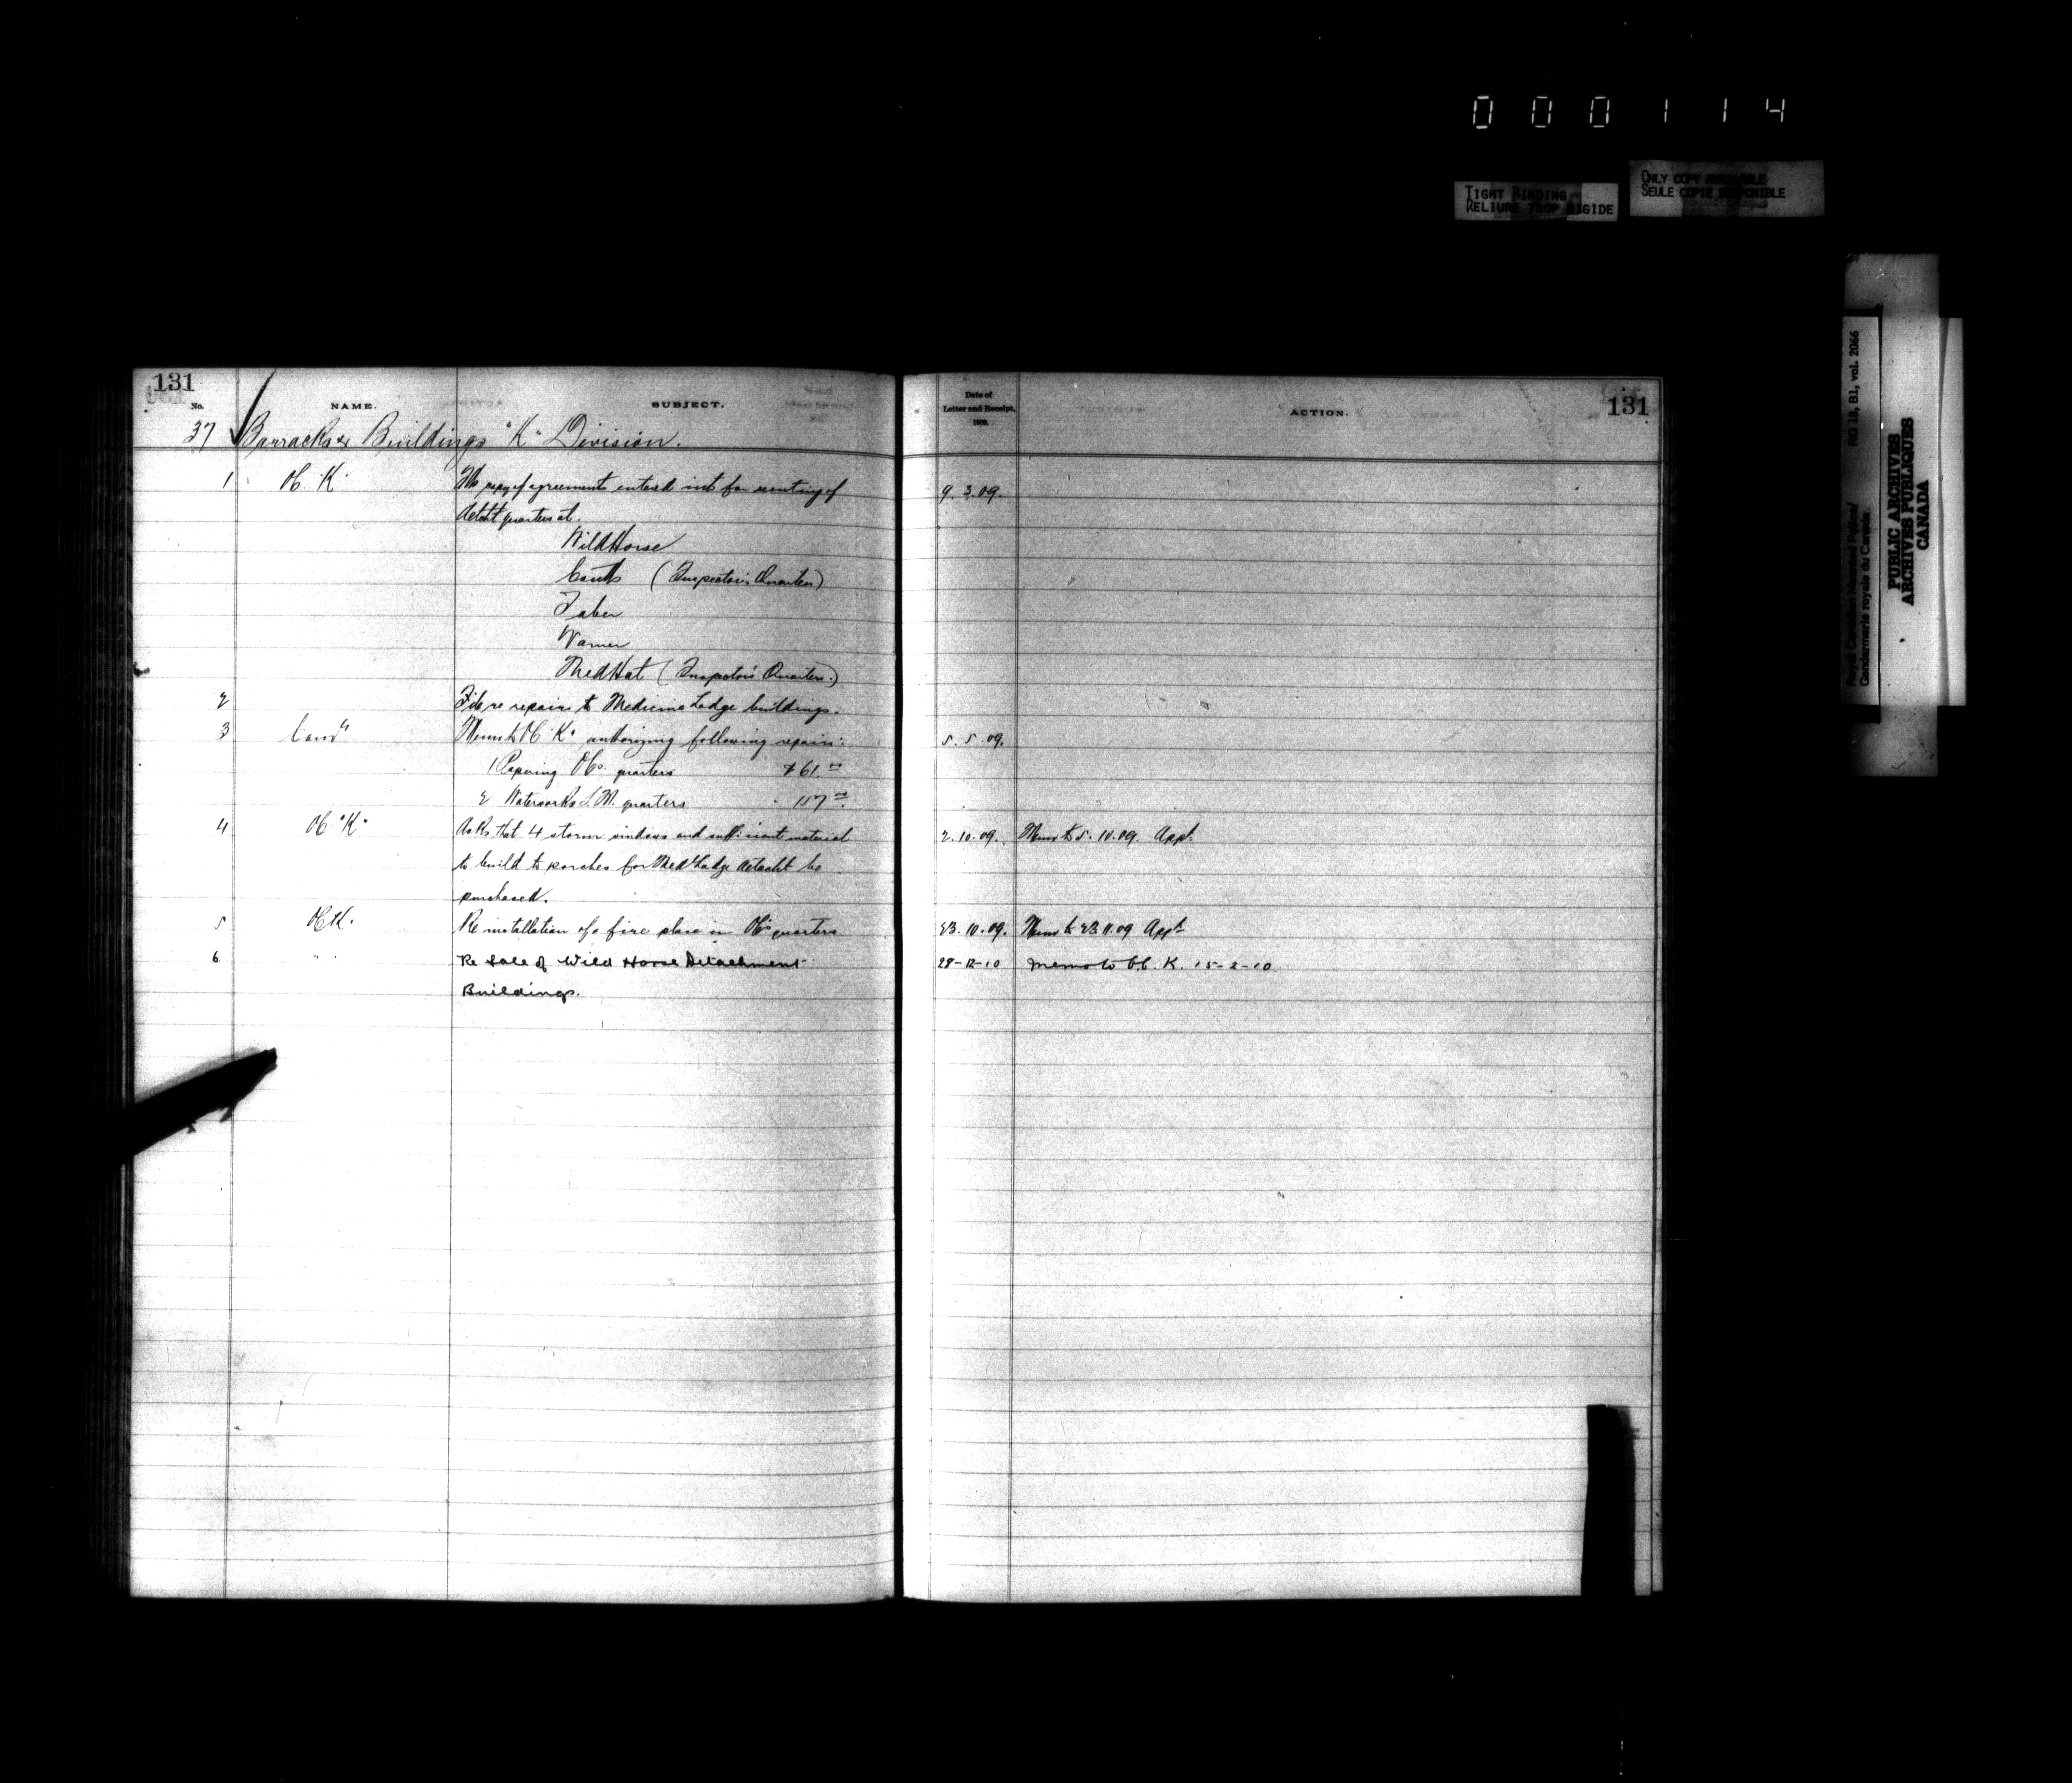 000114
TIGHT BINDING
RELIURE TROP RIGIDE
ONLY COPY AVAILABLE
SEULE COPIE DISPONIBLE
Royal Canadian Mounted Police/
Gendarmerie royale du Canada.
RG 18, B1, vol. 2066
PUBLIC ARCHIVES
ARCHIVES PUBLIQUES
CANADA
131
No. NAME. SUBJECT.
Date of
Letter and Receipt,
1909.
ACTION. 131
37 Barracks & Buildings "K" Division.
1 OC. "K" copy of agreements entered into for renting of 9.3.09.
detcht quarters at.
Wild Horse
Coutts (Inspector's Quarters)
Taber
Warner
Med Hat (Inspector's Quarters.)
2 File re repairs to Medicine Lodge buildings.
3 Memo to OC "K" authorizing following repairs: 5.5.09.
1 OCs. quarters $61.00
2 Waterworks S.M. quarters 157.00
4 OC "K" Asks that 4 storm windows and sufficient material 2.10.09. Memo to 5.10.09. App'd.
to build to porches for Med Lodge detacht be
purchased.
5 OC K. Re installation of a fire place in OC's quarters 23.10.09. Memo to 23.11.09 App'd
6 " " Re Sale of Wild Horse Detachment 28-12-10 memo to O.C. K. 15-2-10
Buildings.